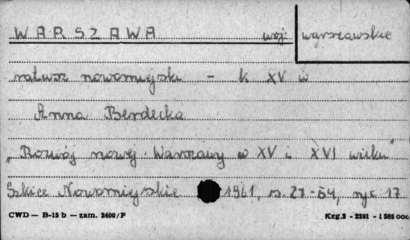 WARSZAWA woj: warszawskie
ratusz nowomiejski - K XV w
Anna Berdecka
„Rozwój nowej Warszawy w XV i XVI wieku"
Szkice Nowomiejskie 1961, s. 27-54, ryc 17
CWD — B-15 b — zam. 2400/F Kzg.2 - 2281 - 1 585 000